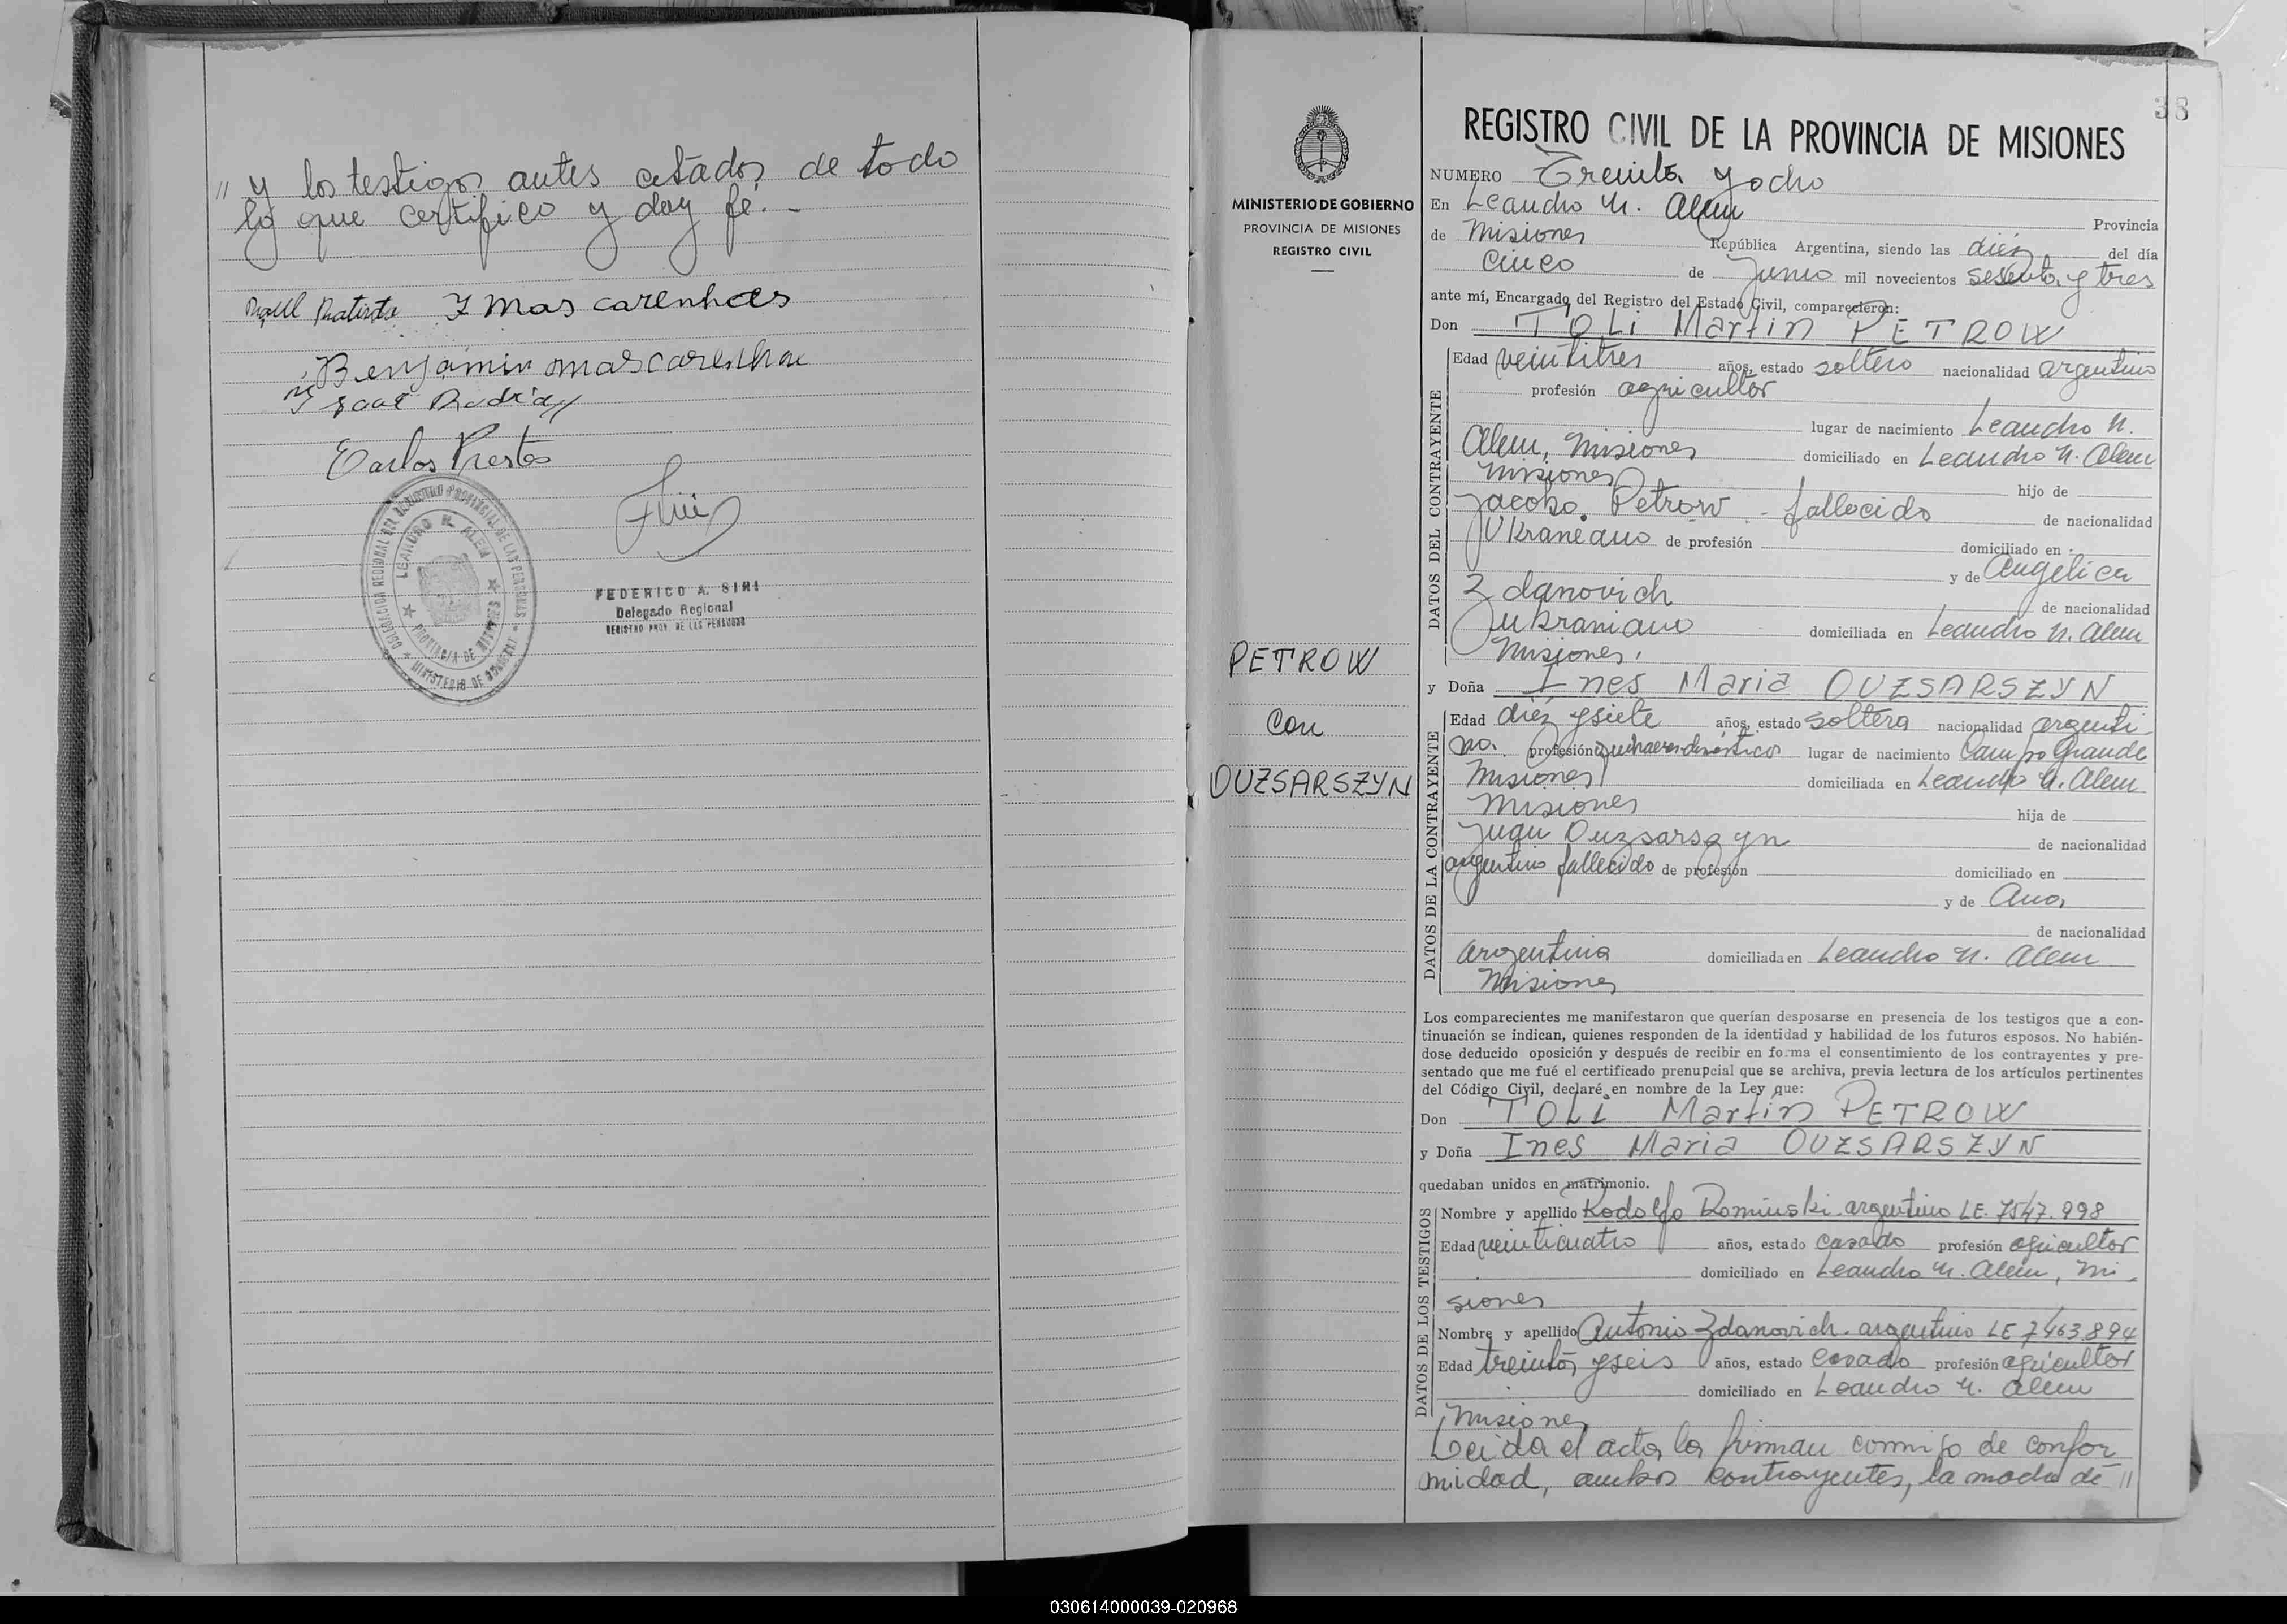 " y los testigos antes citados de todo
lo que certifico y doy fé. -
Raul Batista J Mascarenhas
Benjamin mascarenha
Carlos Prestes
DELEGACION REGIONAL DEL REGISTRO PROVINCIAL DE LAS PERSONAS
LEANDRO N. ALEM
PROVINCIA DE MISIONES
MINISTERIO DE GOBIERNO
FEDERICO A. SIRI
Delegado Regional
REGISTRO PROV. DE LAS PERSONAS
38
MINISTERIO DE GOBIERNO
PROVINCIA DE MISIONES
REGISTRO CIVIL
PETROW
con
OUZSARSZYN
REGISTRO CIVIL DE LA PROVINCIA DE MISIONES
NUMERO Treinta y ocho
En Leandro N. Alem Provincia
de Misiones República Argentina, siendo las diéz del día
cinco de Junio mil novecientos sesenta y tres
ante mí, Encargado del Registro del Estado Civil, comparecieron:
Don TOLi Martin PETROW
DATOS DEL CONTRAYENTE
Edad veintitres años, estado soltero nacionalidad argentino
profesión agricultor
lugar de nacimiento Leandro N.
Alem, Misiones domiciliado en Leandro N. Alem
Misiones hijo de
Jacobo Petrow - fallecido de nacionalidad
Ukraneano de profesión domiciliado en
y de Angélica
Zdanovich de nacionalidad
ukraniano domiciliada en Leandro N. Alem
Misiones.
y Doña Ines Maria OUZSARSZYN
DATOS DE LA CONTRAYENTE
Edad diéz y siete años, estado soltera nacionalidad argenti-
na. profesión quehaceres domésticos lugar de nacimiento Campo Grande
Misiones domiciliada en Leandro N. Alem
Misiones hija de
Juan Ouzsarszyn de nacionalidad
argentino fallecido de profesión domiciliado en
y de Ana,
de nacionalidad
argentina domiciliada en Leandro N. Alem
Misiones
Los comparecientes me manifestaron que querían desposarse en presencia de los testigos que a con-
tinuación se indican, quienes responden de la identidad y habilidad de los futuros esposos. No habién-
dose deducido oposición y después de recibir en forma el consentimiento de los contrayentes y pre-
sentado que me fué el certificado prenupcial que se archiva, previa lectura de los artículos pertinentes
del Código Civil, declaré en nombre de la Ley que:
Don TOLi Martin PETROW
y Doña Ines Maria OUZSARSZYN
quedaban unidos en matrimonio.
DATOS DE LOS TESTIGOS
Nombre y apellido Rodolfo Rominski argentino LE. 7547.998
Edad veinticuatro años, estado casado profesión agricultor
domiciliado en Leandro N. Alem, Mi-
siones
Nombre y apellido Antonio Zdanovich. argentino LE 7463894
Edad treinta y seis años, estado casado profesión agricultor
domiciliado en Leandro N. Alem
Misiones
Leida el acta, la firman conmigo de confor-
midad, ambos contrayentes, la madre de "
030614000039-020968